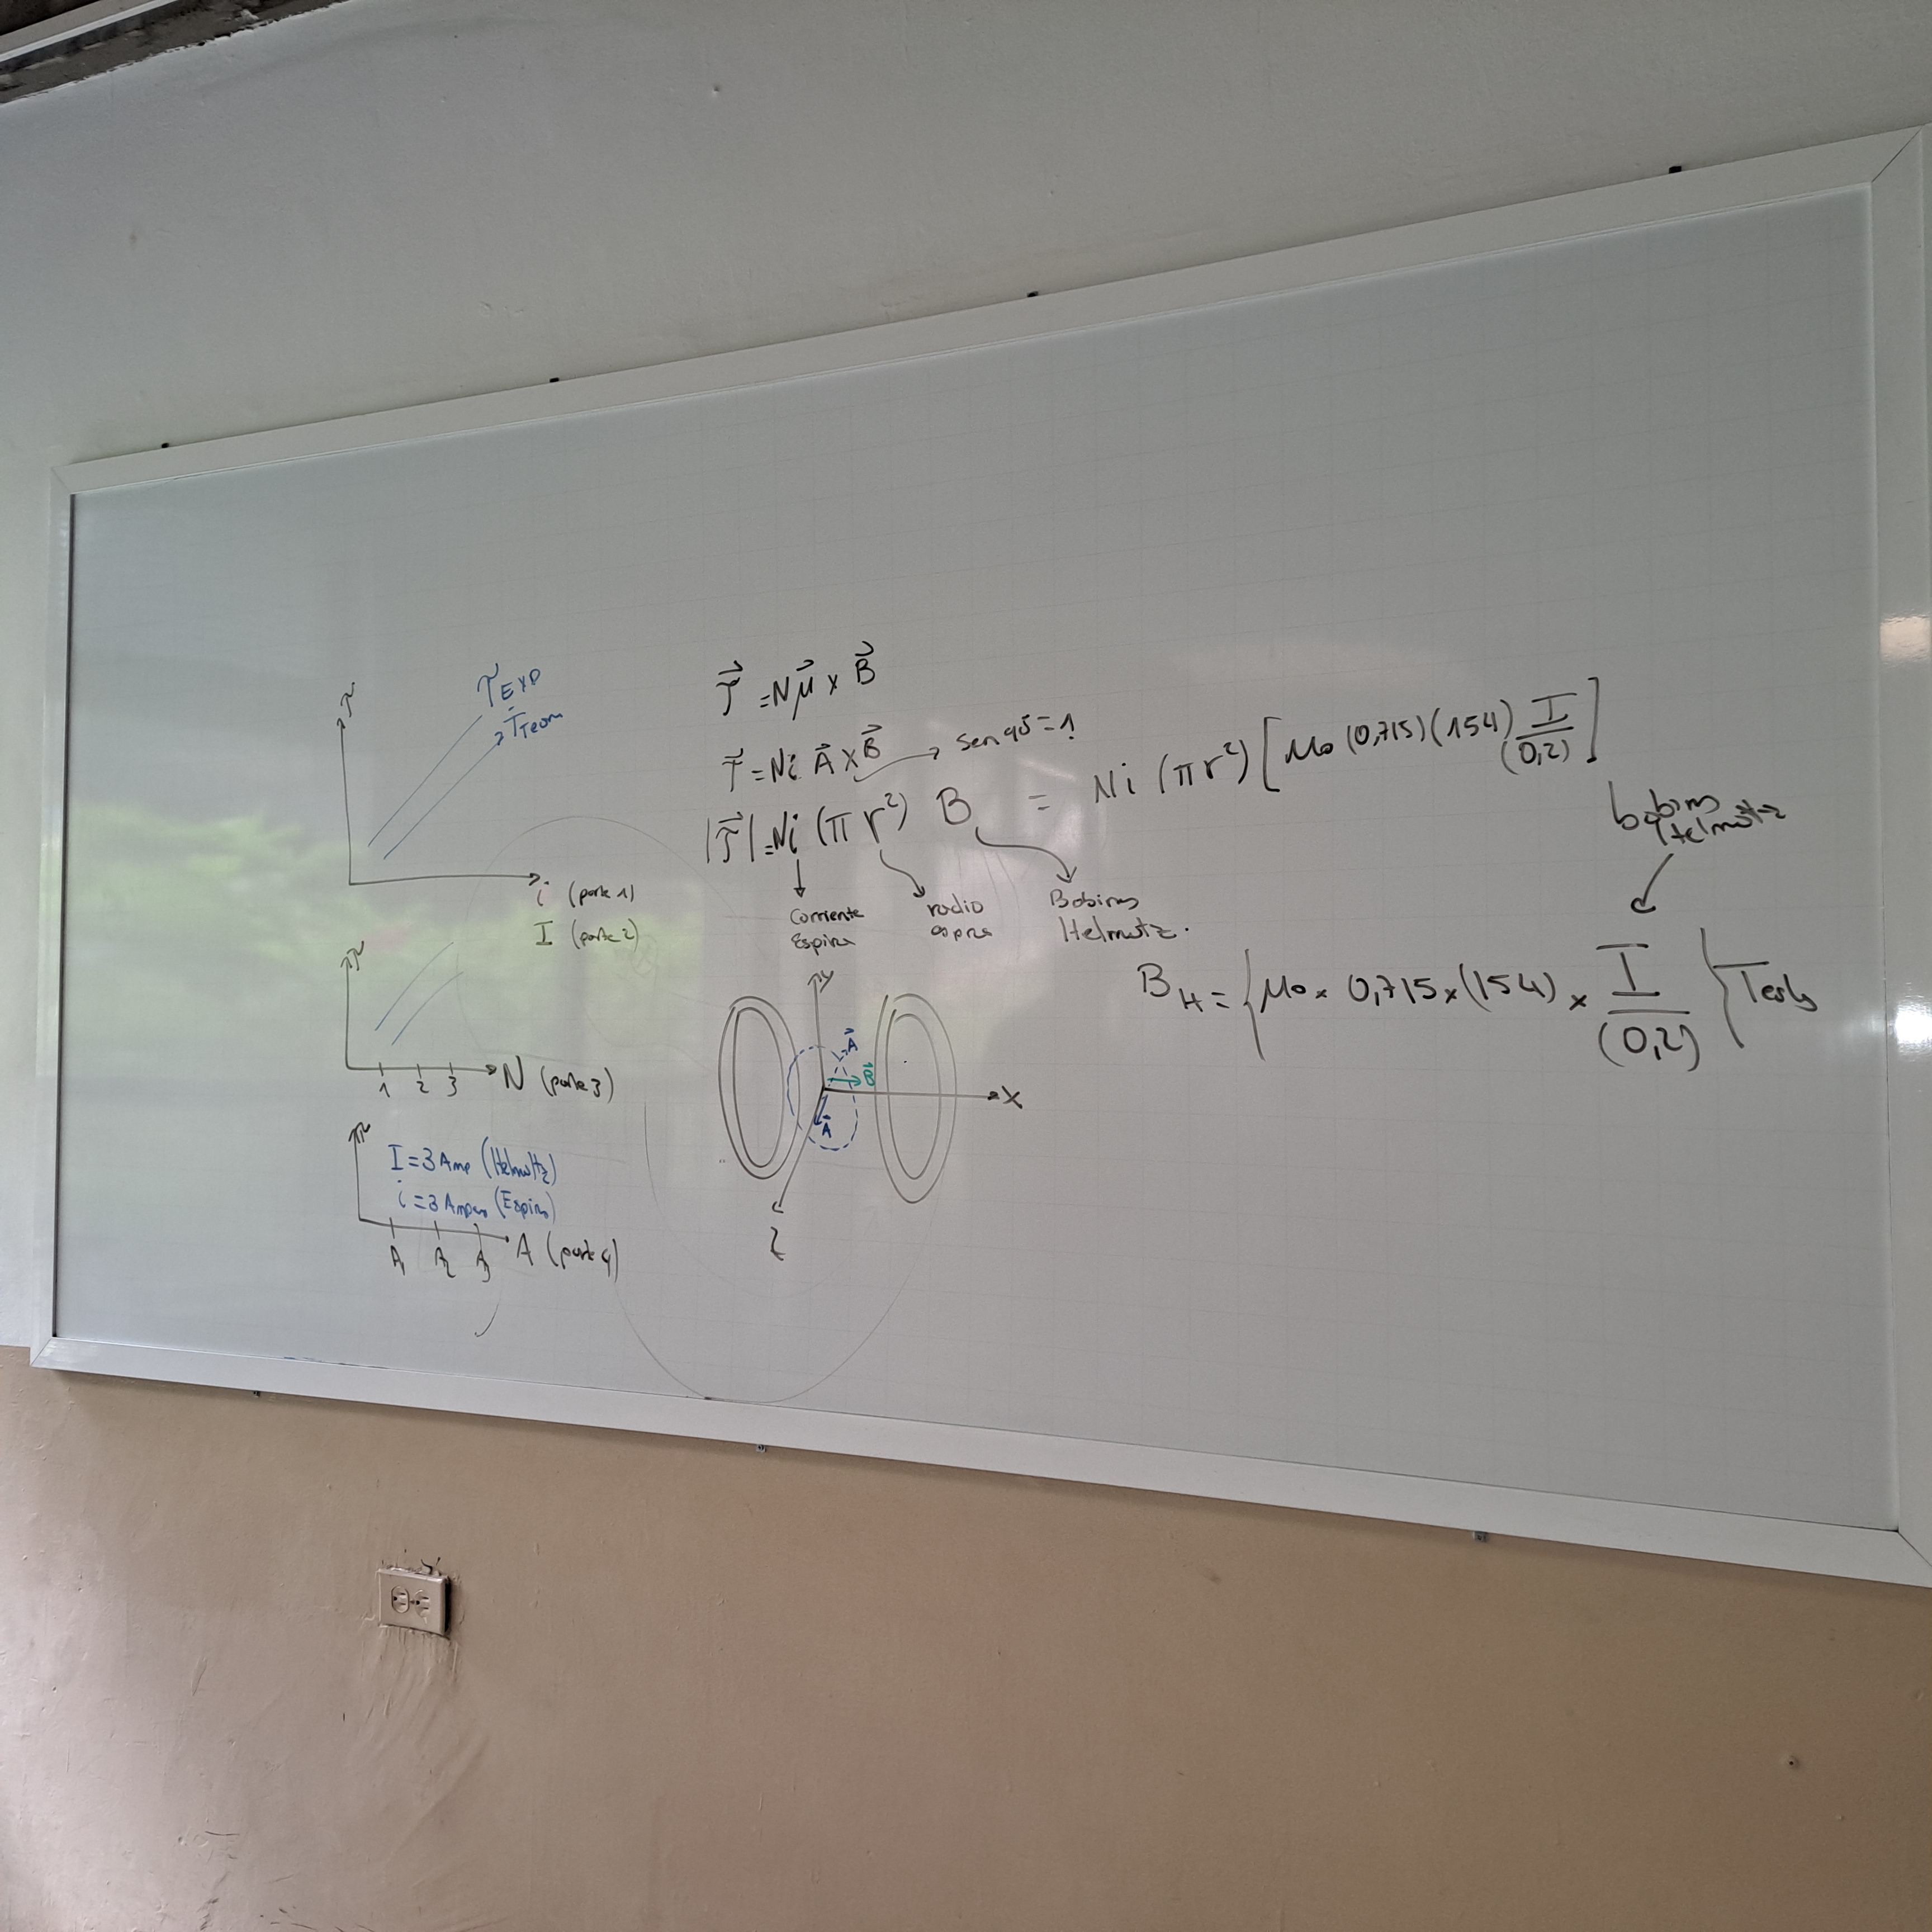 τ
τ Exp
τ Teori
i (parte 1)
I (parte 2)
τ
1 2 3 N (parte 3)
τ
I = 3 Amp (Helmoltz)
i = 3 Amper (Espira)
A₁ A₂ A₃ A (parte 4)
τ⃗ = N μ⃗ x B⃗
τ⃗ = N i A⃗ x B⃗ → sen 90° = 1
|τ⃗| = N i (π r²) B = N i (π r²) [μo (0,715) (154) I/(0,2)]
Corriente Espira
radio espira
Bobinas Helmotz.
bobinas Helmotz
B_H = {μo x 0,715 x (154) x I/(0,2)} Tesla
Y
A⃗
B⃗
X
A⃗
Z